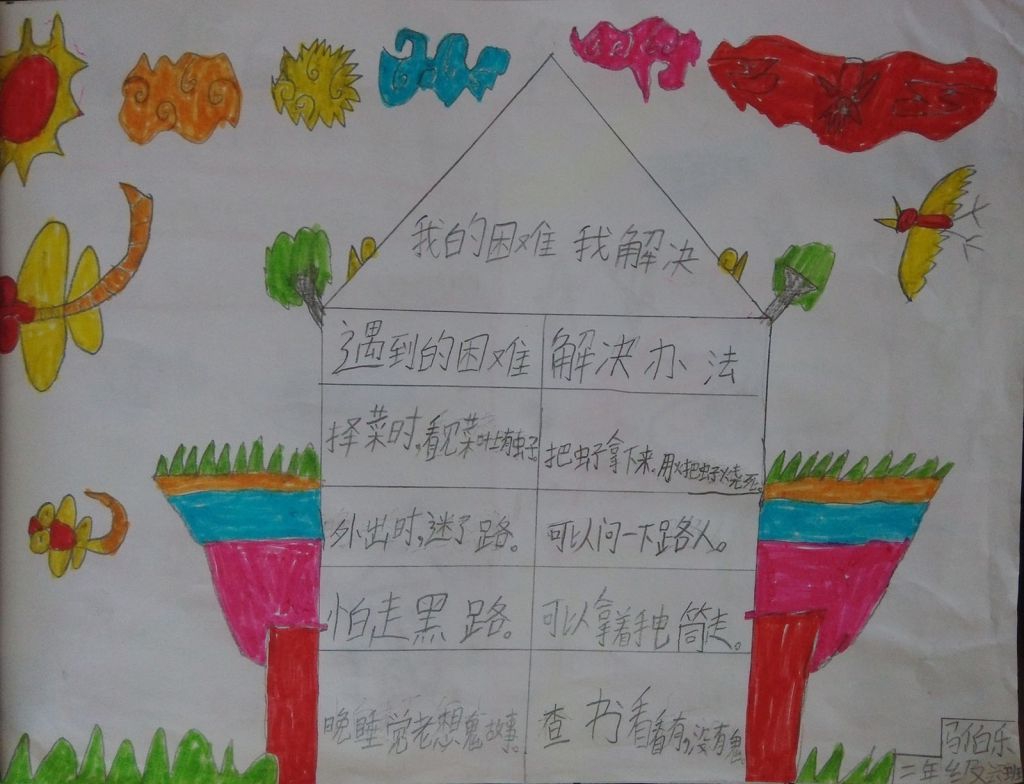 我的困难 我解决
遇到的困难 解决办法
择菜时,看见菜上有虫子。 把虫子拿下来,用火把虫子烧死。
外出时,迷了路。 可以问一下路人。
怕走黑路。 可以拿着手电筒走。
晚睡觉老想鬼故事。 查书看看有没有鬼。
马伯乐
二年